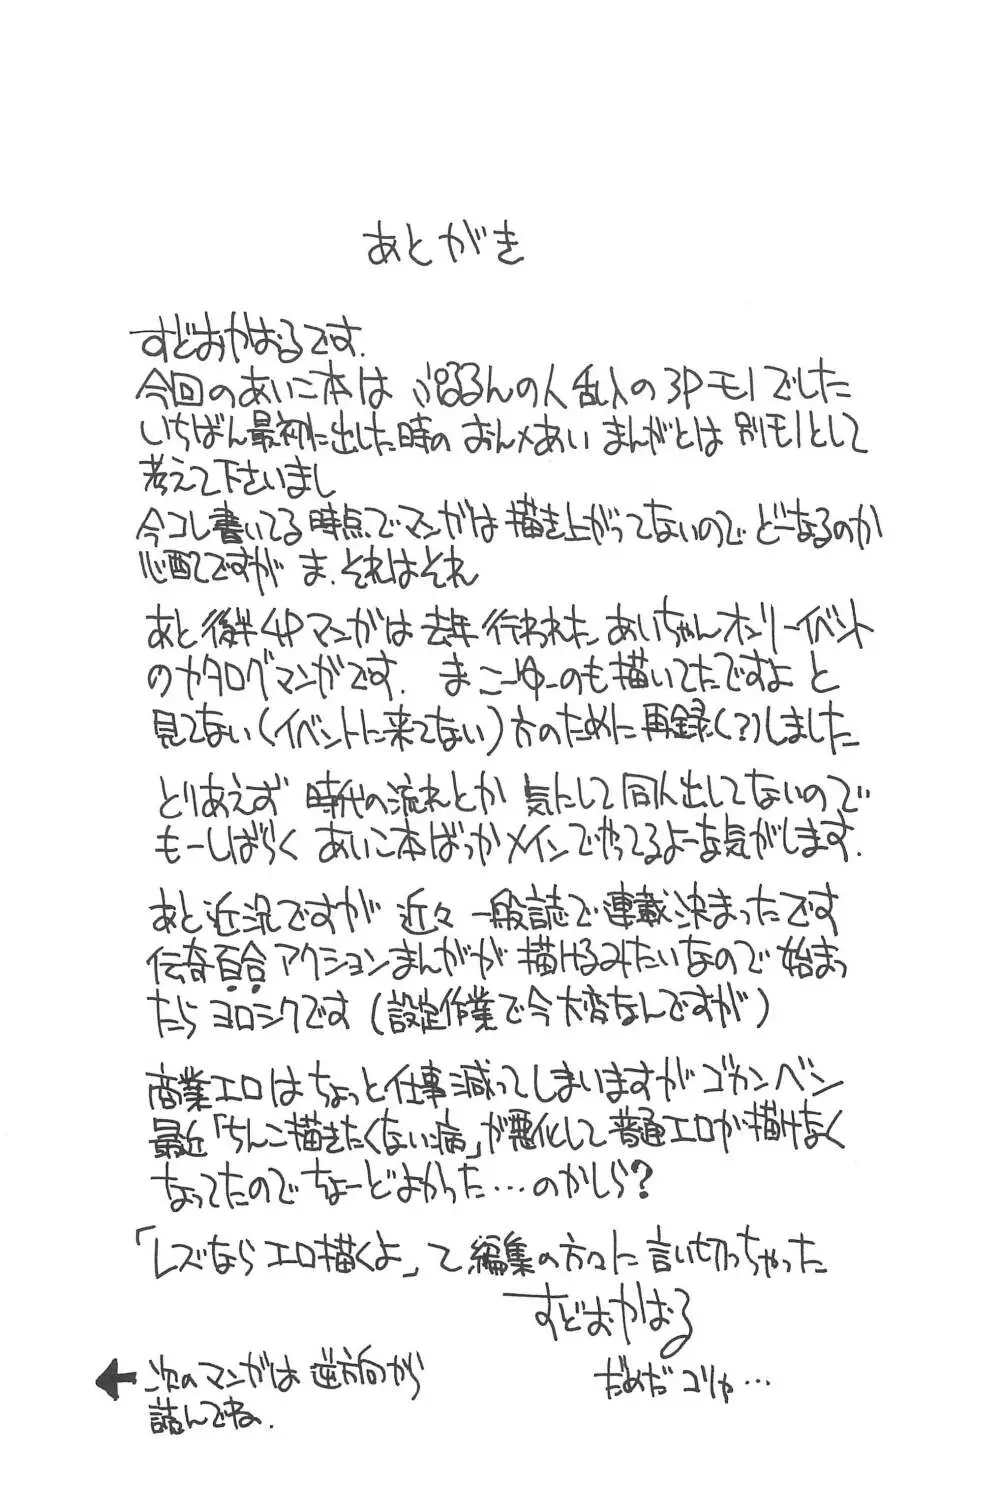 あとがき
すどおかおるです.
今回のあいこ本は ぷるるんの人乱入の3Pモノでした
いちばん最初に出した時の おんなあい まんがとは 別モノとして
考えて下さいまし
今コレ書いてる時点でマンガは描き上がってないので どーなるのか
心配ですが ま、それはそれ
あと後半4Pマンガは去年行われた あいちゃんオンリーイベント
のカタログマンガです. まこーゆーのも描いてたですよ と
見てない(イベントに来てない)方のために再録(?)しました
とりあえず 時代の流れとか 気にして同人出してないので
もーしばらく あいこ本ばっかメインでやってるよーな気がします.
あと近況ですが 近々 一般誌で連載決まったです
伝奇百合アクションまんがが 描けるみたいなので 始まっ
たら ヨロシクです (設定作業で今大変なんですが)
商業エロはちょっと仕事減ってしまいますがゴカンベン
最近「ちんこ描きたくない病」が悪化して普通エロが描けなく
なってたので ちょーどよかった…のかしら?
「レズなら エロ描くよ」て 編集の方々に言い切っちゃった
すどおかおる
だめだ コリャ…
← 次のマンガは 逆方向から
読んでね.